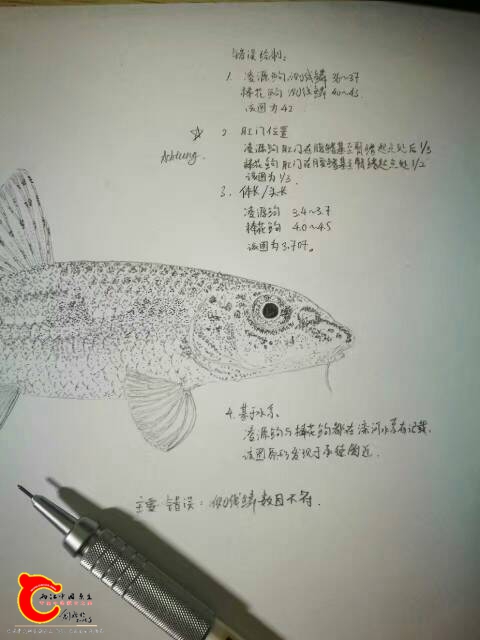 错误绘制:
1. 凌源鮈 侧线鳞 36~37
棒花鮈 侧线鳞 40~45
该图为42
☆ 2. 肛门位置
Achtung.
凌源鮈 肛门在腹鳍基至臀鳍起点处后1/3
棒花鮈 肛门在腹鳍基至臀鳍起点处1/2
该图为1/3.
3. 体长/头长
凌源鮈 3.4~3.7
棒花鮈 4.0~4.5
该图为3.707。
4. 基于水系
凌源鮈与棒花鮈都在滦河水系有记载.
该图原형发现于承德附近.
主要错误: 侧线鳞数目不符.
两江中国原生